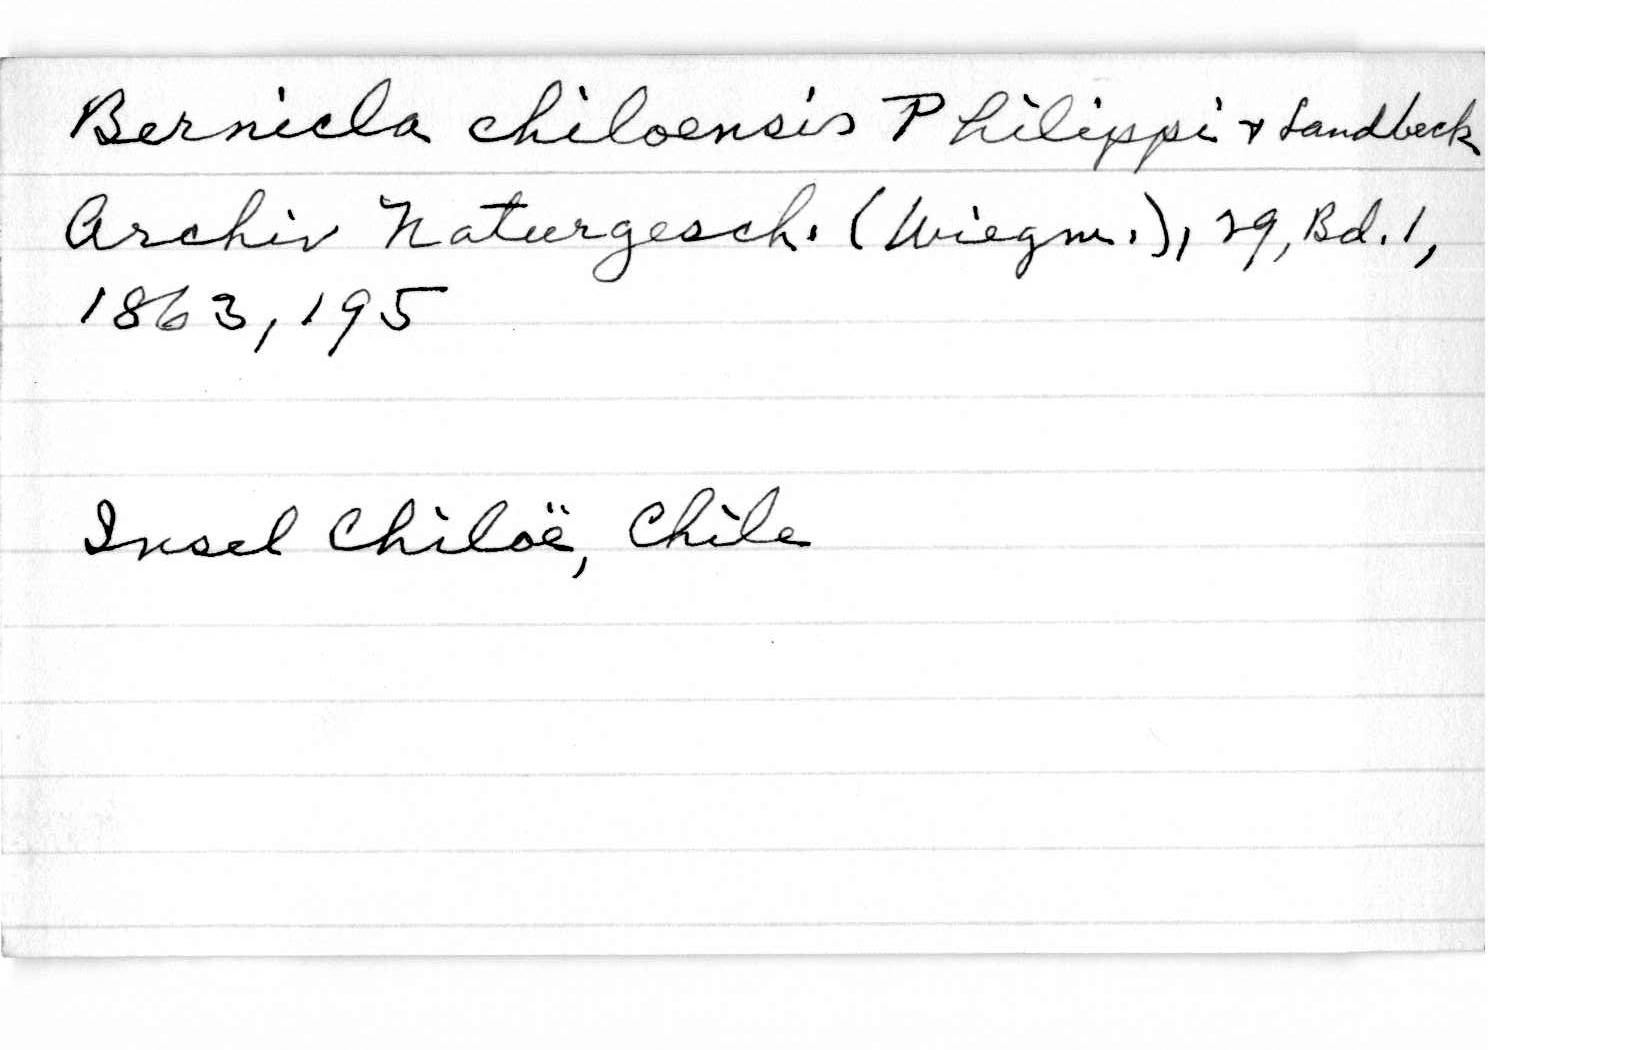 Bernicla chiloensis Philippi & Landbeck
Archiv Naturgesch. (Wiegm.), 29, Bd. 1,
1863, 195
Insel Chiloë, Chile